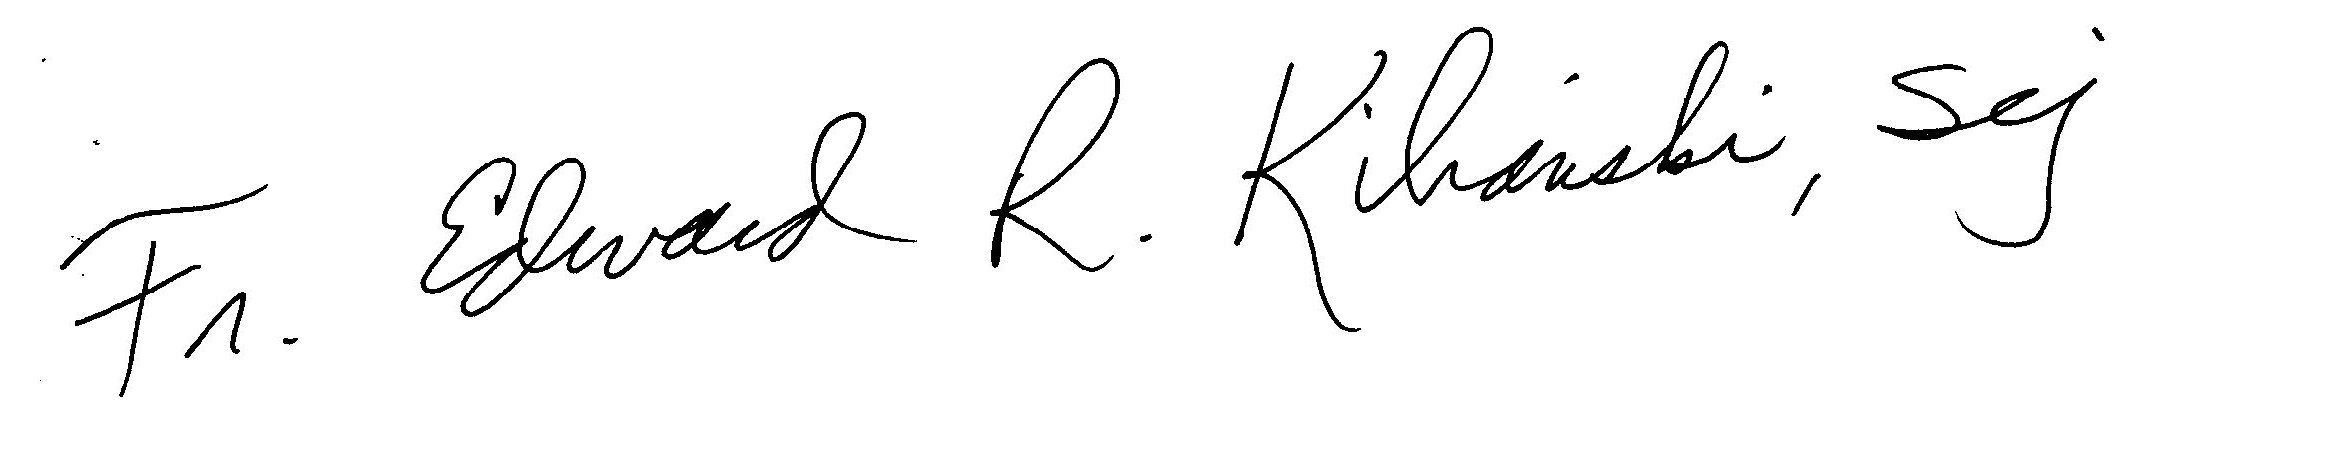 Fr. Edward R. Kilianski, scj